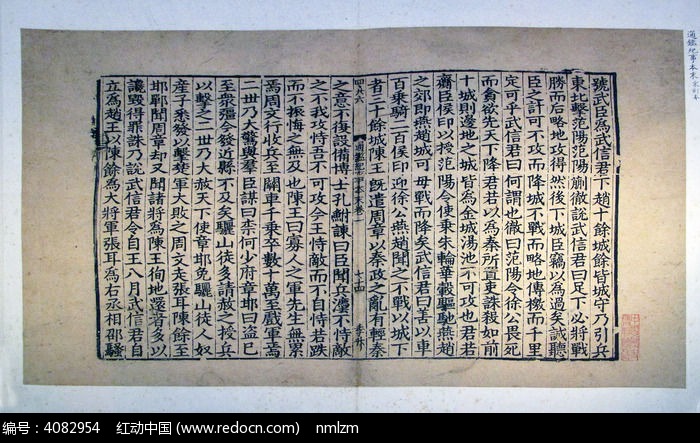 通鑑紀事本末
號武臣為武信君下趙十餘城餘皆城守乃引兵
東北擊范陽范陽蒯徹說武信君曰足下必將戰
勝而后略地攻得然後下城臣竊以為過矣誠聽
臣之計可不攻而降城不戰而略地傳檄而千里
定可乎武信君曰何謂也徹曰范陽令徐公畏死
而貪欲先天下降君君若以為秦所置吏誅殺如前
十城則邊地之城皆為金城湯池不可攻也君若
齎臣侯印以授范陽令使乘朱輪華轂驅馳燕趙
之郊即燕趙城可毋戰而降矣武信君曰善以車
百乘騎二百侯印迎徐公燕趙聞之不戰以城下
者三十餘城陳王旣遣周章以秦政之亂有輕秦
之意不復設備博士孔鮒諫曰臣聞兵灋不恃敵
之不我攻恃吾不可攻今王恃敵而不自恃若跌
而不振悔之無及也陳王曰寡人之軍先生無累
焉周文行收兵至關車千乘卒數十萬至戲軍焉
二世乃大驚與羣臣謀曰柰何少府章邯曰盜已
至衆彊今發近縣不及矣驪山徒多請赦之授兵
以擊之二世乃大赦天下使章邯免驪山徒人奴
產子悉發以擊楚軍大敗之周文走張耳陳餘至
邯鄲聞周章却又聞諸將為陳王徇地還者多以
讒毀得罪誅乃說武信君令自王八月武信君自
立為趙王以陳餘為大將軍張耳為右丞相邵騷
编号：4082954 红动中国 (www.redocn.com) nmlzm